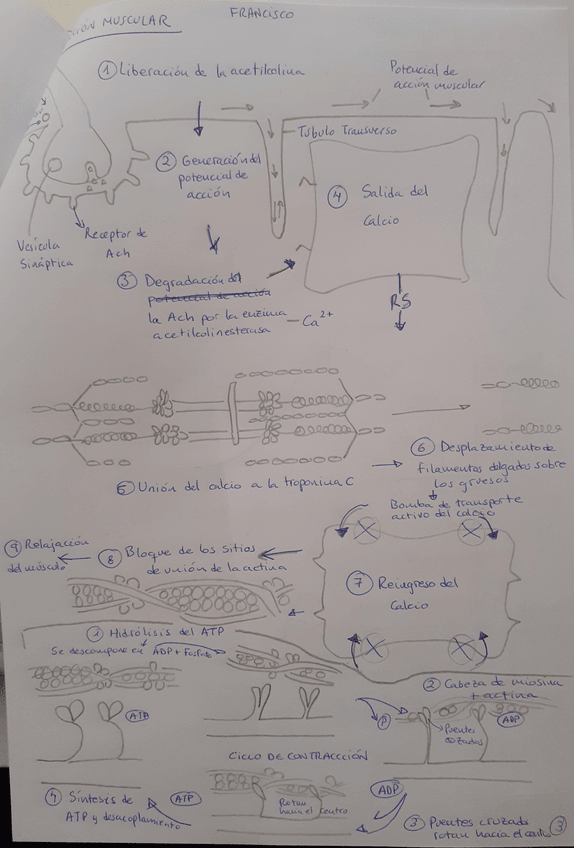 FRANCISCO
CIÓN MUSCULAR
① Liberación de la acetilcolina
Potencial de
acción muscular
Tubulo Transverso
② Generación del
potencial de
acción
④ Salida del
Calcio
Receptor de
Ach
Vesícula
Sináptica
③ Degradación del
potencial de acción
la Ach por la enzima
acetilcolinesterasa
Ca²⁺
RS
⑥ Desplazamiento de
filamentos delgados sobre
los gruesos
⑤ Unión del calcio a la troponina C
Bomba de transporte
activo del calcio
⑨ Relajación
del músculo
⑧ Bloque de los sitios
de unión de la actina
⑦ Reingreso del
Calcio
① Hidrólisis del ATP
Se descompone en ADP + Fosfato
② Cabeza de miosina
+ actina
ATP
P
Puentes
cruzados
ADP
CICLO DE CONTRACCCIÓN
④ Síntesis de
ATP y desacoplamiento
ATP
Rotan
hacia el centro
ADP
③ Puentes cruzado
rotan hacia el centro ③